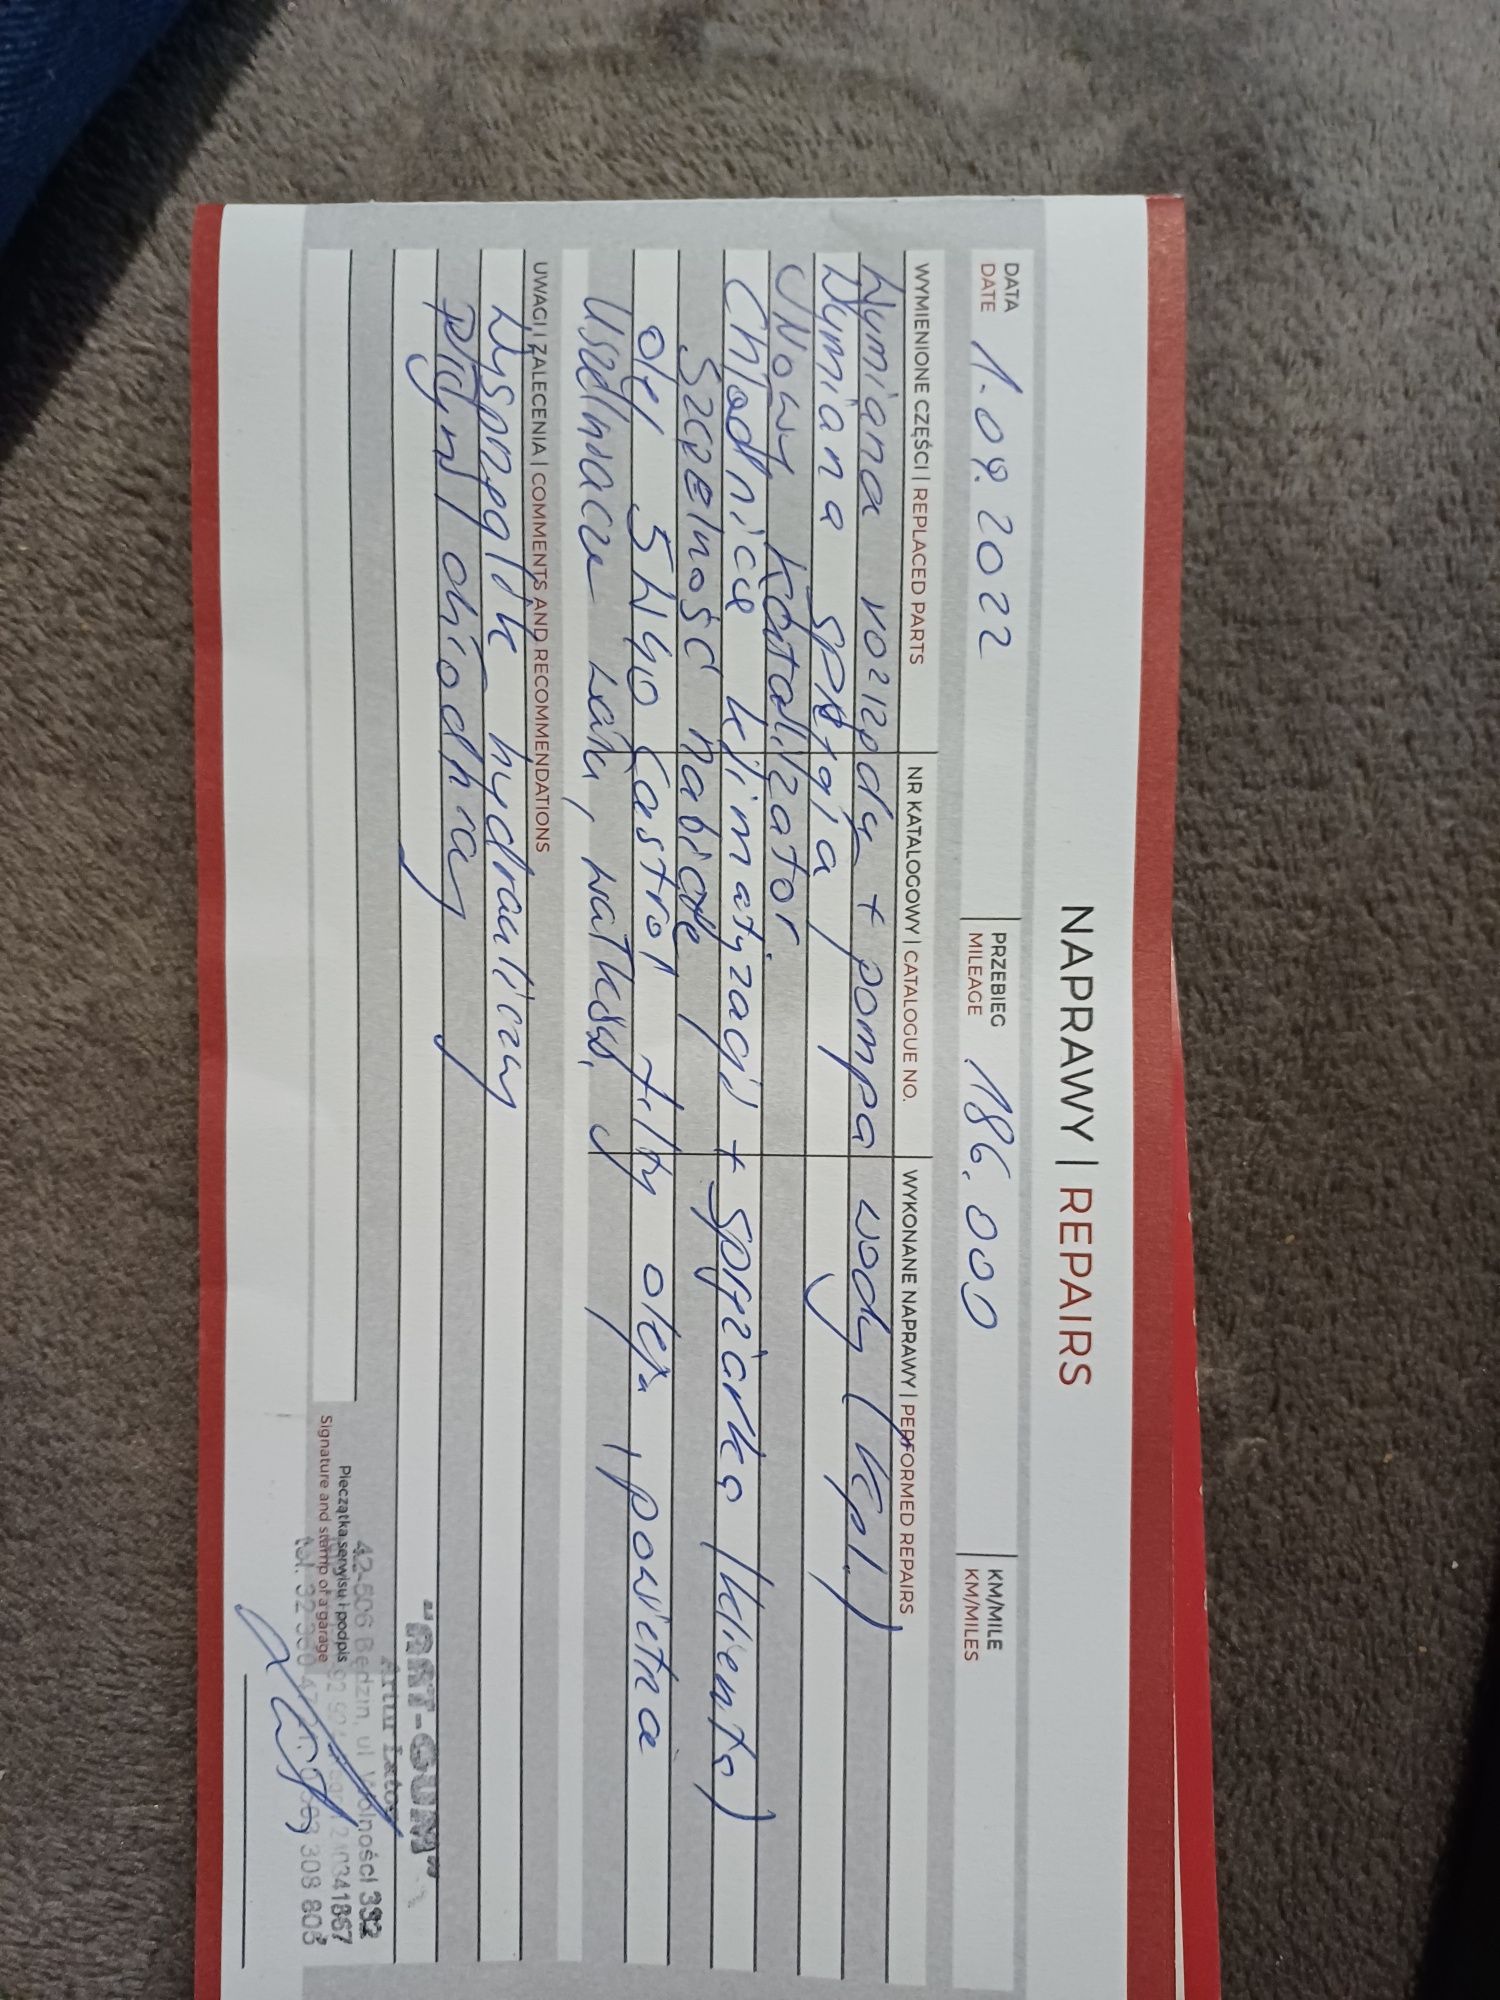 NAPRAWY | REPAIRS
DATA
DATE 1.09.2022
PRZEBIEG
MILEAGE 186.000
KM/MILE
KM/MILES
WYMIENIONE CZĘŚCI | REPLACED PARTS NR KATALOGOWY | CATALOGUE NO. WYKONANE NAPRAWY | PERFORMED REPAIRS
Wymiana rozrządu + pompa wody (kpl.)
Wymiana
Nowy Katalizator.
Chłodnica klimatyzacji + sprężarka (klienta)
Szczelność nabicie
olej 5W40 Castrol filtry oleju, powietrza
wałka,
UWAGI I ZALECENIA | COMMENTS AND RECOMMENDATIONS
Wysprzęglik hydrauliczny
płyn chłodniczy
"ART-GUM"
Artur
42-506 Będzin, ul. Wolności 332
Pieczątka serwisu i podpis
Signature and stamp of a garage